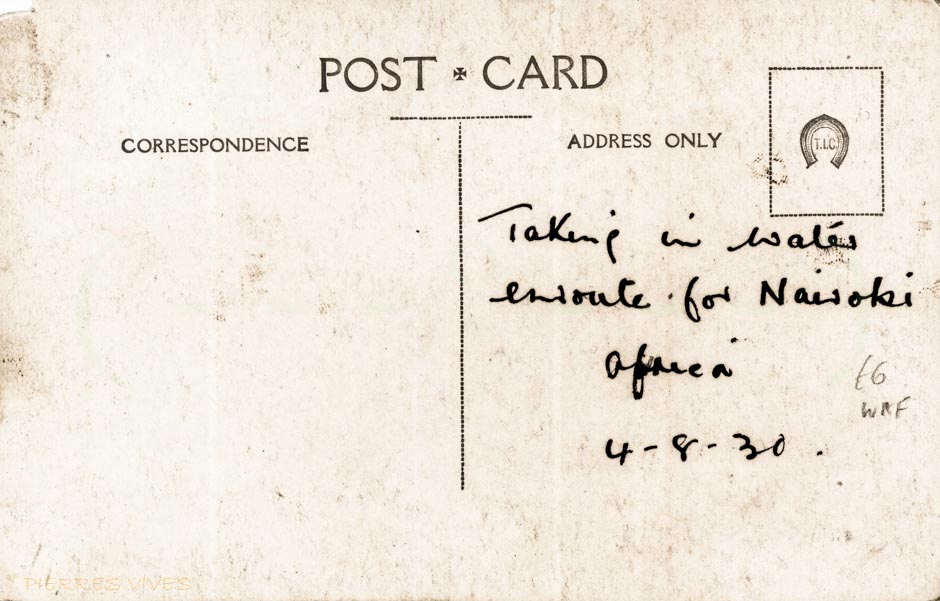 POST CARD
CORRESPONDENCE
ADDRESS ONLY
T.I.C.
Taking in water
enroute for Nairobi
Africa
4-8-30.
£6
WAF
PIERRES VIVES